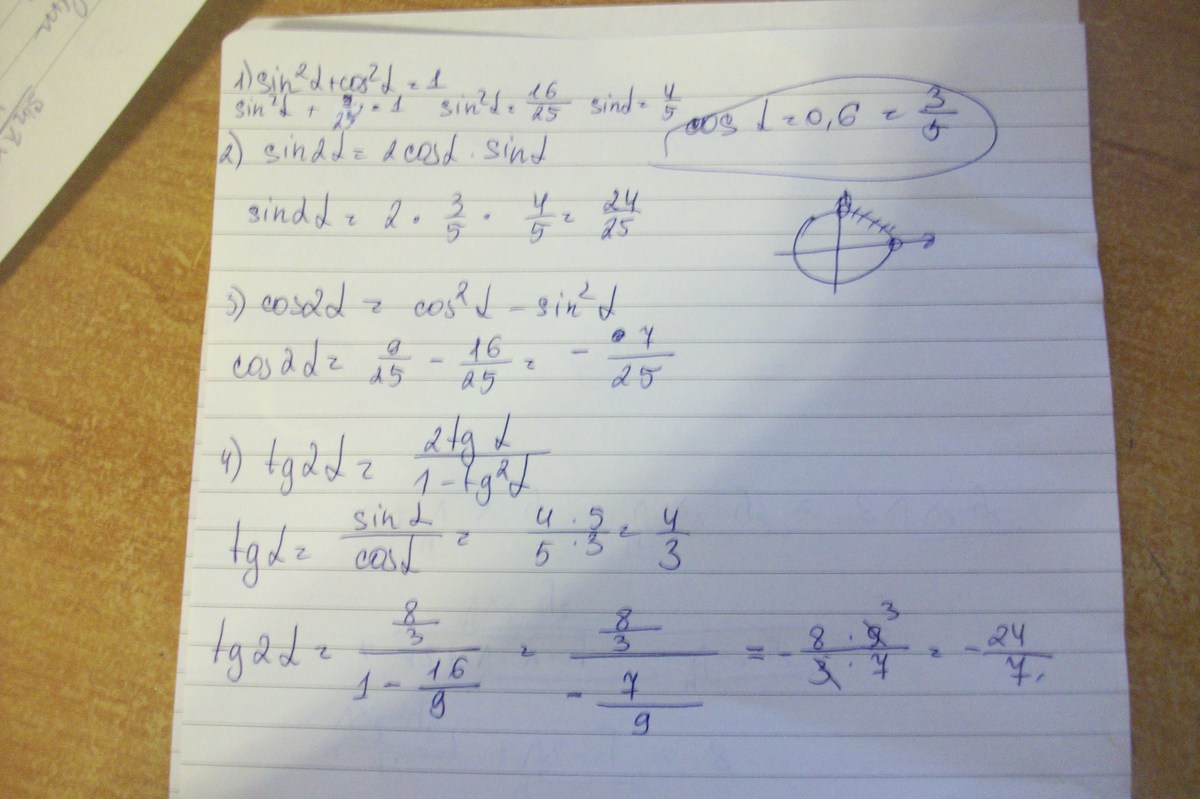 1) sin²α + cos²α = 1
sin²α + 9/25 = 1 sin²α = 16/25 sinα = 4/5
cos α = 0,6 = 3/5
2) sin2α = 2cosα · sinα
sin2α = 2 · 3/5 · 4/5 = 24/25
3) cos2α = cos²α - sin²α
cos2α = 9/25 - 16/25 = - 7/25
4) tg2α = 2tg α / 1 - tg²α
tgα = sin α / cosα = 4 · 5 / 5 · 3 = 4/3
tg2α = 8/3 / 1 - 16/9 = 8/3 / - 7/9 = - 8 · 9 3 / 3 · 7 = - 24/7.